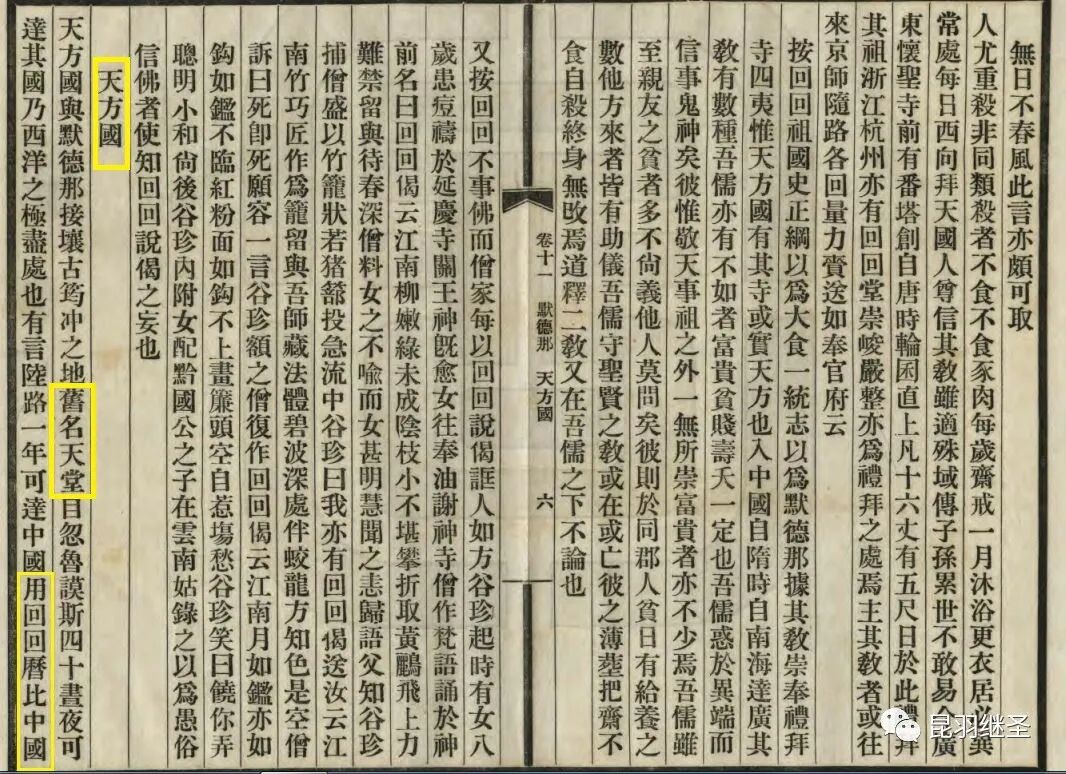 無日不春風此言亦頗可取
人尤重殺非同類殺者不食不食豕肉每歲齋戒一月沐浴更衣居必異
常處每日西向拜天國人尊信其敎雖適殊域傳子孫累世不敢易今廣
東懷聖寺前有番塔創自唐時輪囷直上凡十六丈有五尺日於此禮拜
其祖浙江杭州亦有回回堂崇峻嚴整亦爲禮拜之處焉主其敎者或往
來京師隨路各回量力賫送如奉官府云
按回回祖國史正綱以爲大食一統志以爲默德那據其敎崇奉禮拜
寺四夷惟天方國有其寺或實天方也入中國自隋時自南海達廣其
敎有數種吾儒亦有不如者富貴貧賤壽夭一定也吾儒惑於異端而
信事鬼神矣彼惟敬天事祖之外一無所崇富貴者亦不少焉吾儒雖
至親友之貧者多不尙義他人莫問矣彼則於同郡人貧日有給養之
數他方來者皆有助儀吾儒守聖賢之敎或在或亡彼之薄塟把齋不
食自殺終身無攺焉道釋二敎又在吾儒之下不論也
卷十一 默德那 天方國 六
又按回回不事佛而僧家每以回回說偈誑人如方谷珍起時有女八
歲患痘禱於延慶寺關王神旣愈女往奉油謝神寺僧作梵語誦於神
前名曰回回偈云江南柳嫩綠未成陰枝小不堪攀折取黃鸝飛上力
難禁留與待春深僧料女之不喩而女甚明慧聞之恚歸語父知谷珍
捕僧盛以竹籠狀若猪篰投急流中谷珍曰我亦有回回偈送汝云江
南竹巧匠作爲籠留與吾師藏法體碧波深處伴蛟龍方知色是空僧
訴曰死卽死願容一言谷珍額之僧復作回回偈云江南月如鑑亦如
鈎如鑑不臨紅粉面如鈎不上畫簾頭空自惹塲愁谷珍笑曰饒你弄
聰明小和尙後谷珍內附女配黔國公之子在雲南姑錄之以爲愚俗
信佛者使知回回說偈之妄也
天方國
天方國與默德那接壤古筠冲之地舊名天堂自忽魯謨斯四十晝夜可
達其國乃西洋之極盡處也有言陸路一年可達中國用回回曆比中國
昆羽继圣